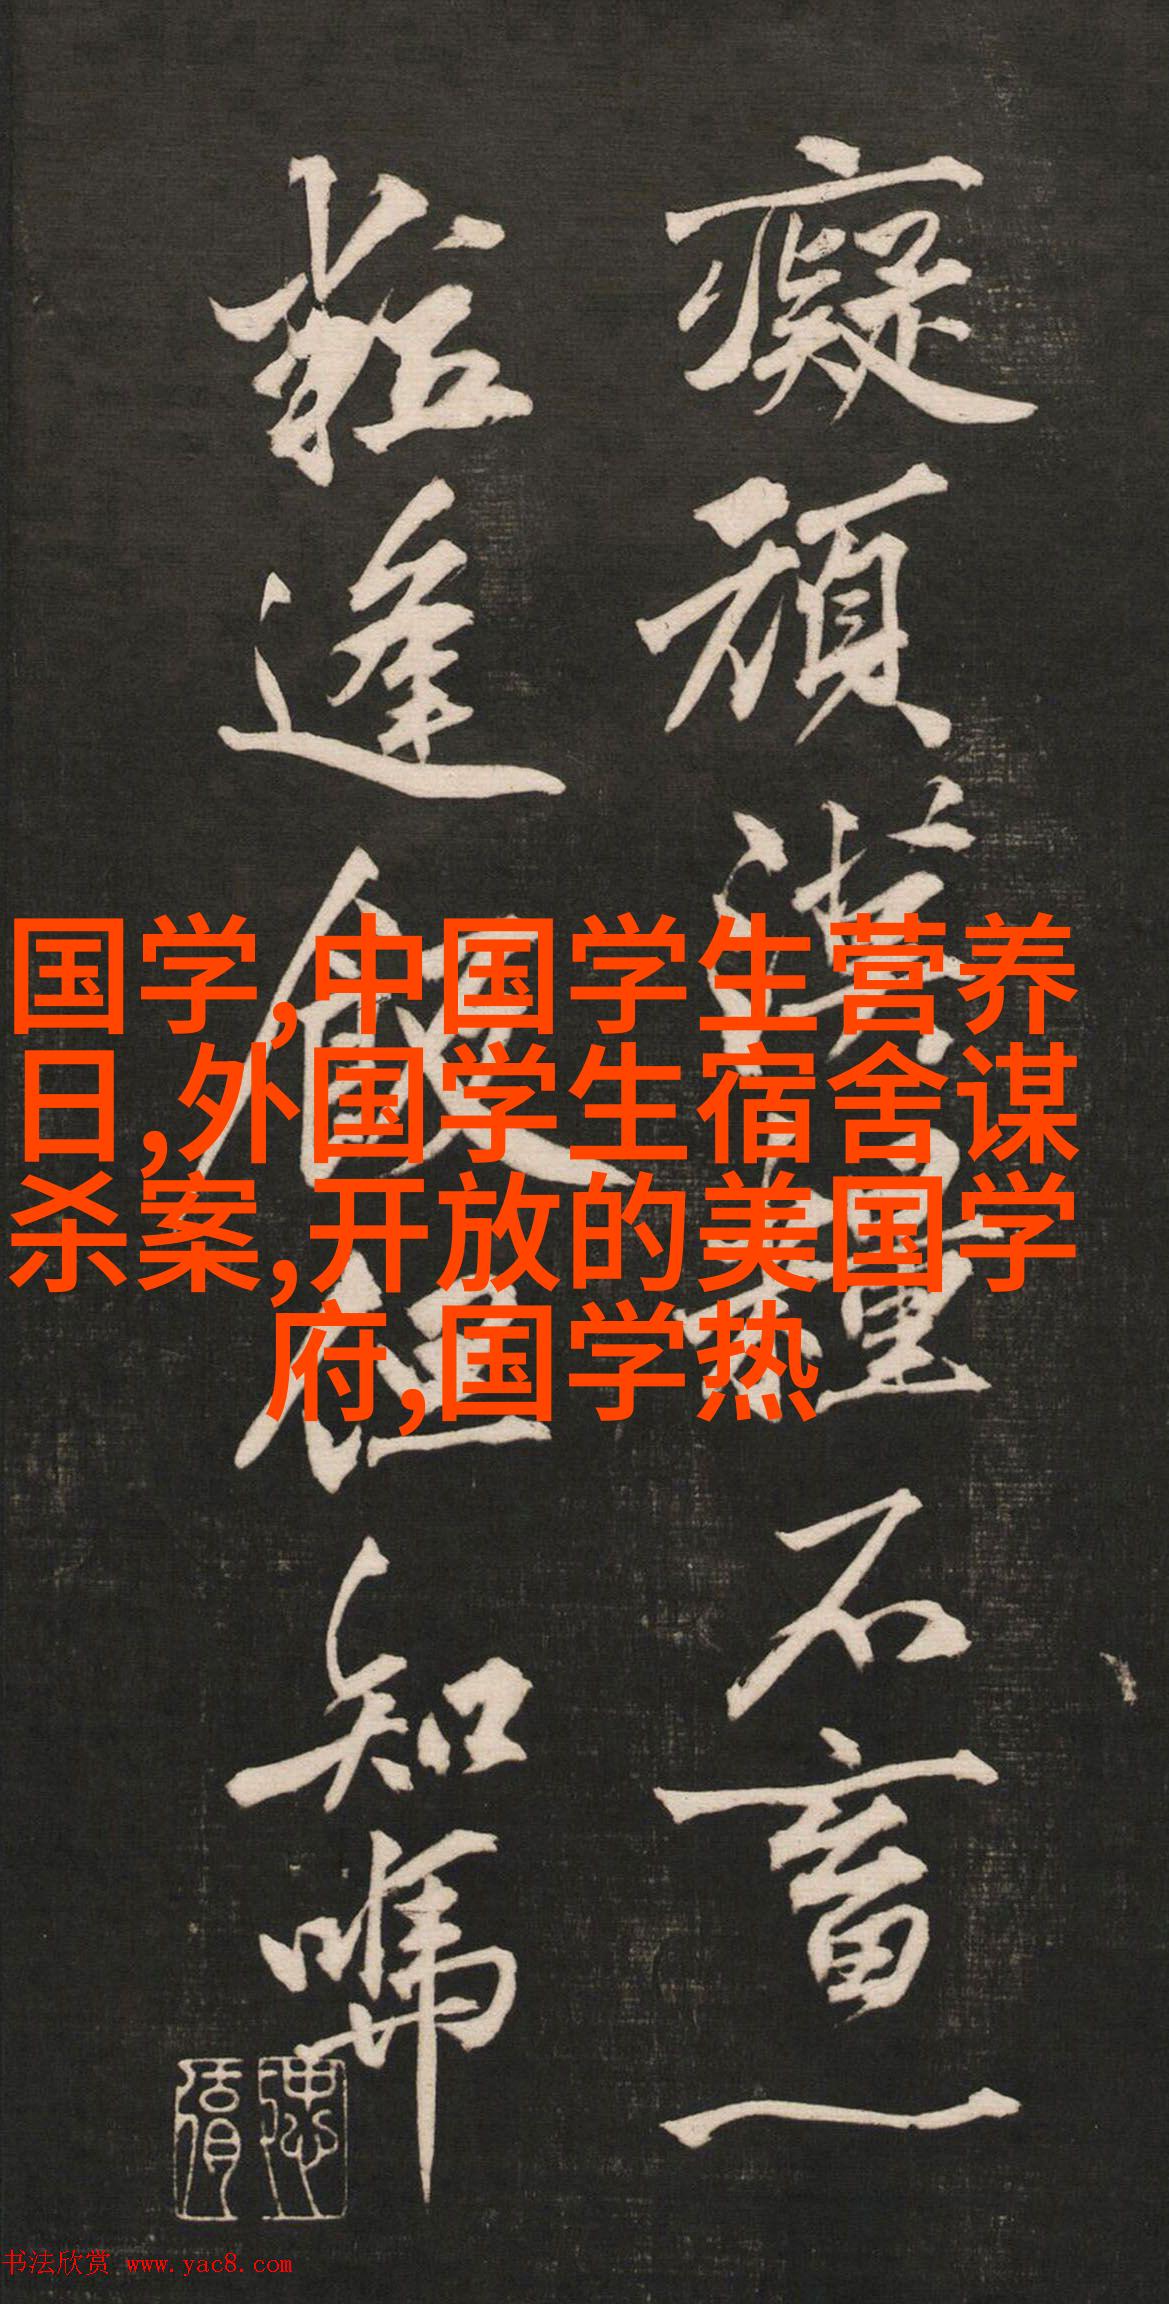 癡頑漢糧不畜一
粒逢飯但知
国学,中国学生营养
日,外国学生宿舍谋
杀案,开放的美国学
府,国学热
书法欣赏 www.yac8.com